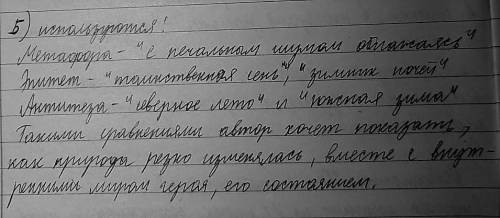 Б) используются!
Метафора - "с печальном шумом обнажаясь"
Эпитет - "таинственная сень", "зимних ночей"
Антитеза - "северное лето" и "южная зима"
Такими сравнениями автор хочет показать,
как природа резко изменялась, вместе с внут-
ренними миром героя, его состоянием.